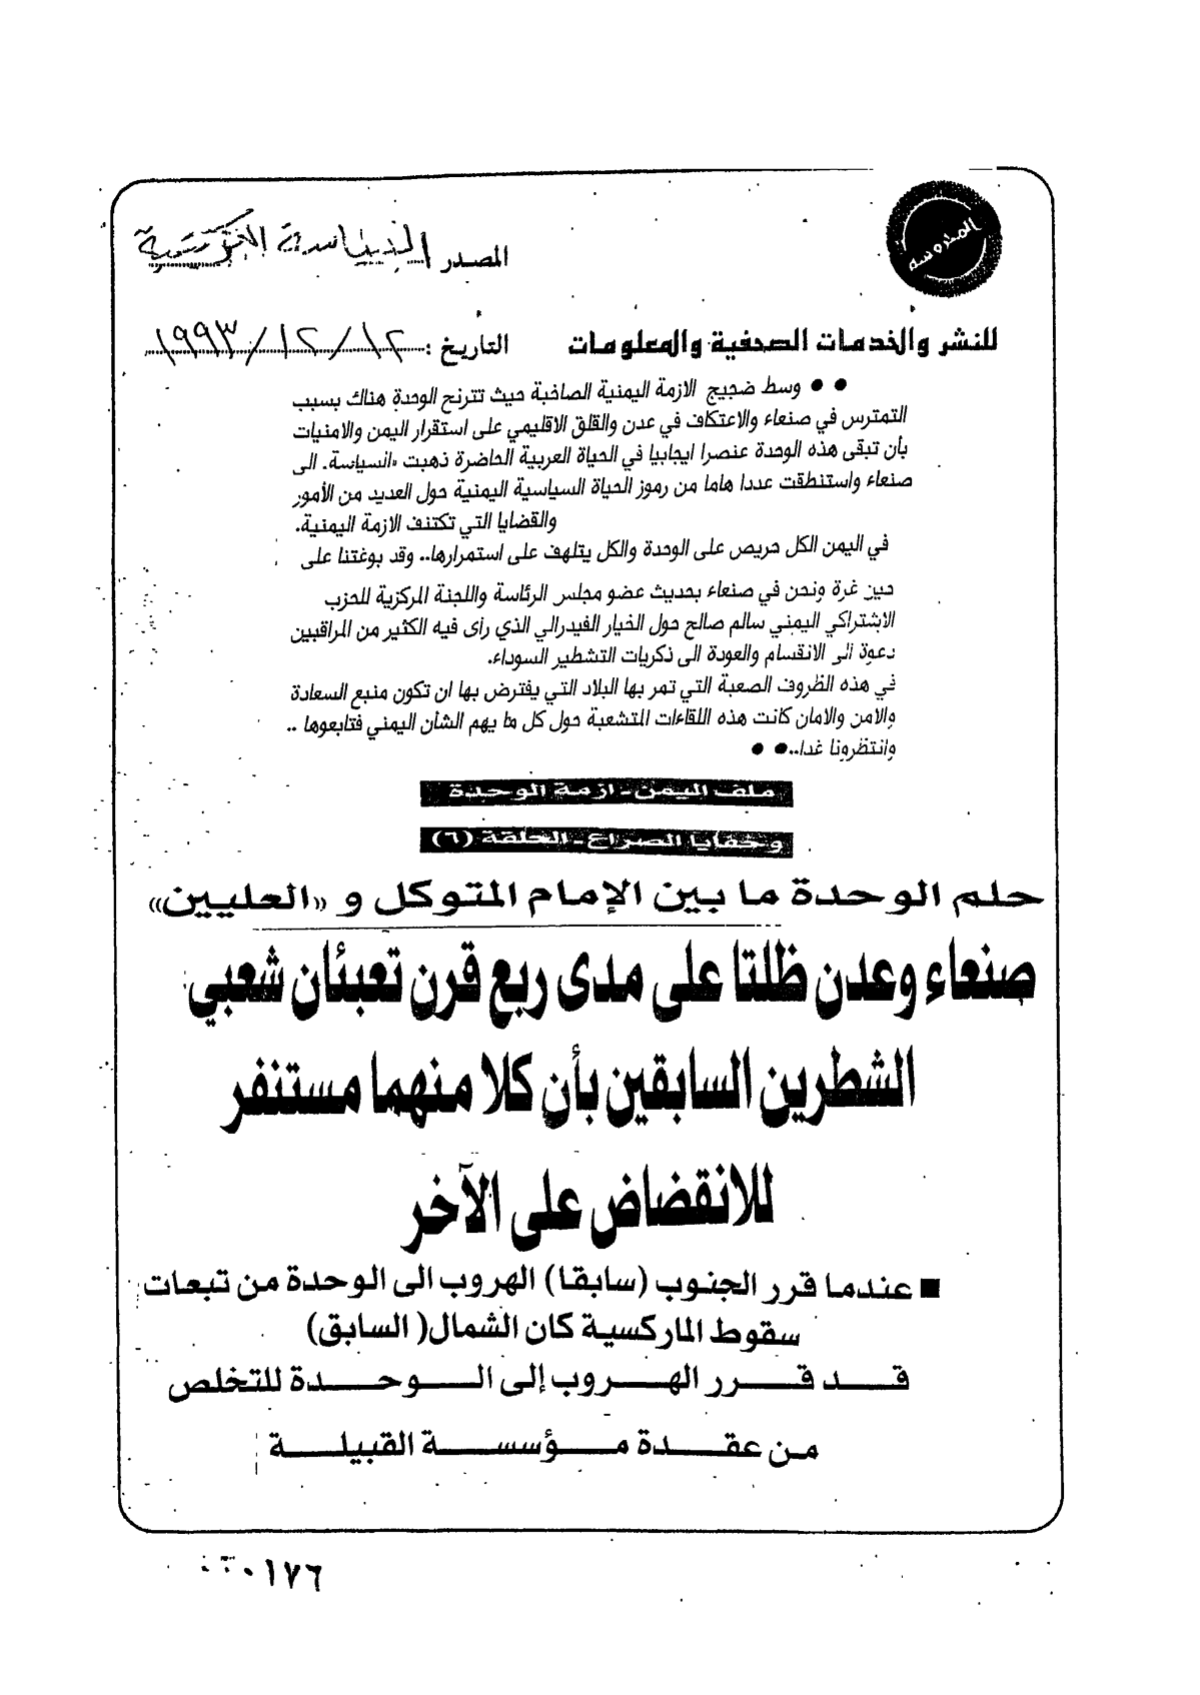 المحروسة
المصدر : السياسة الكويتية
للنشر والخدمات الصحفية والمعلومات
التاريخ : ١٢ / ١٢ / ١٩٩٣
●● وسط ضجيج الازمة اليمنية الصاخبة حيث تترنح الوحدة هناك بسبب
التمترس في صنعاء والاعتكاف في عدن والقلق الاقليمي على استقرار اليمن والامنيات
بأن تبقى هذه الوحدة عنصرا ايجابيا في الحياة العربية الحاضرة ذهبت «السياسة» الى
صنعاء واستنطقت عددا هاما من رموز الحياة السياسية اليمنية حول العديد من الأمور
والقضايا التي تكتنف الازمة اليمنية.
في اليمن الكل حريص على الوحدة والكل يتلهف على استمرارها.. وقد بوغتنا على
حين غرة ونحن في صنعاء بحديث عضو مجلس الرئاسة واللجنة المركزية للحزب
الاشتراكي اليمني سالم صالح حول الخيار الفيدرالي الذي رأى فيه الكثير من المراقبين
دعوة الى الانقسام والعودة الى ذكريات التشطير السوداء.
في هذه الظروف الصعبة التي تمر بها البلاد التي يفترض بها ان تكون منبع السعادة
والامن والامان كانت هذه اللقاءات المتشعبة حول كل ما يهم الشأن اليمني فتابعوها ..
وانتظرونا غدا..●●
ملف اليمن - ازمة الوحدة
وخفايا الصراع - الحلقة (٦)
حلم الوحدة ما بين الإمام المتوكل و «العليين»
صنعاء وعدن ظلتا على مدى ربع قرن تعبئان شعبي
الشطرين السابقين بأن كلا منهما مستنفر
للانقضاض على الآخر
■ عندما قرر الجنوب (سابقا) الهروب الى الوحدة من تبعات
سقوط الماركسية كان الشمال( السابق)
قد قرر الهروب إلى الوحدة للتخلص
من عقدة مؤسسة القبيلة
٠١٧٦